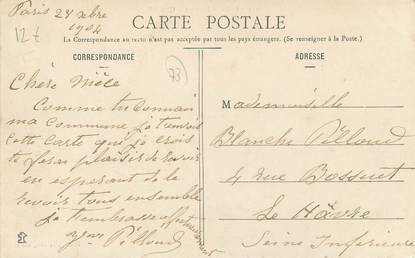 Paris 28 xbre
1904
12t
CARTE POSTALE
La Correspondance au recto n'est pas acceptée par tous les pays étrangers. (Se renseigner à la Poste.)
CORRESPONDANCE
ADRESSE
73
Chère Nièce
Comme tu
ma commune je t'envoie
cette carte qui je crois
te feras plaisir de
en esperant de te
revoir tous ensemble
je t'embrasse
Pilloud
Mademoiselle
Blanche Pilloud
4 rue Bossuet
Le Hâvre
Seine Inférieure